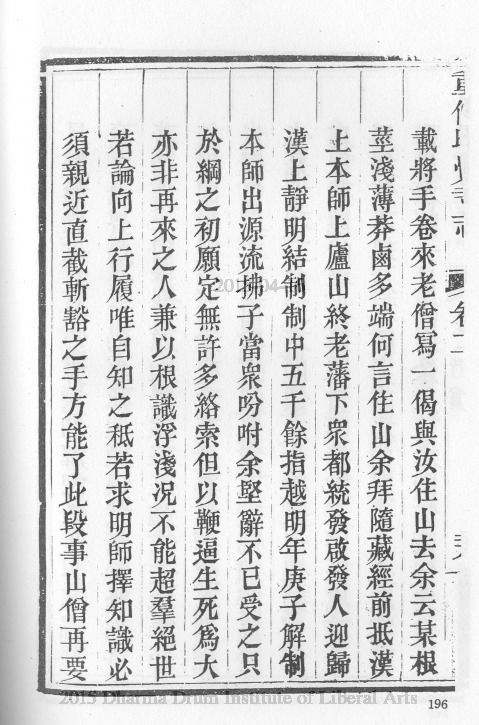 載將手卷來老僧寫一偈與汝住山去余云某根
莖淺薄莽鹵多端何言住山余拜隨藏經前抵漢
上本師上廬山終老藩下衆都統發啟發人迎歸
漢上靜明結制制中五千餘指越明年庚子解制
本師出源流拂子當衆吩咐余堅辭不已受之只
於綱之初願定無許多絡索但以鞭逼生死爲大
亦非再來之人兼以根識浮淺况不能超羣絕世
若論向上行履唯自知之秪若求明師擇知識必
須親近直截斬豁之手方能了此段事山僧再要
卷二
2015 Dharma Drum Institute of Liberal Arts
196